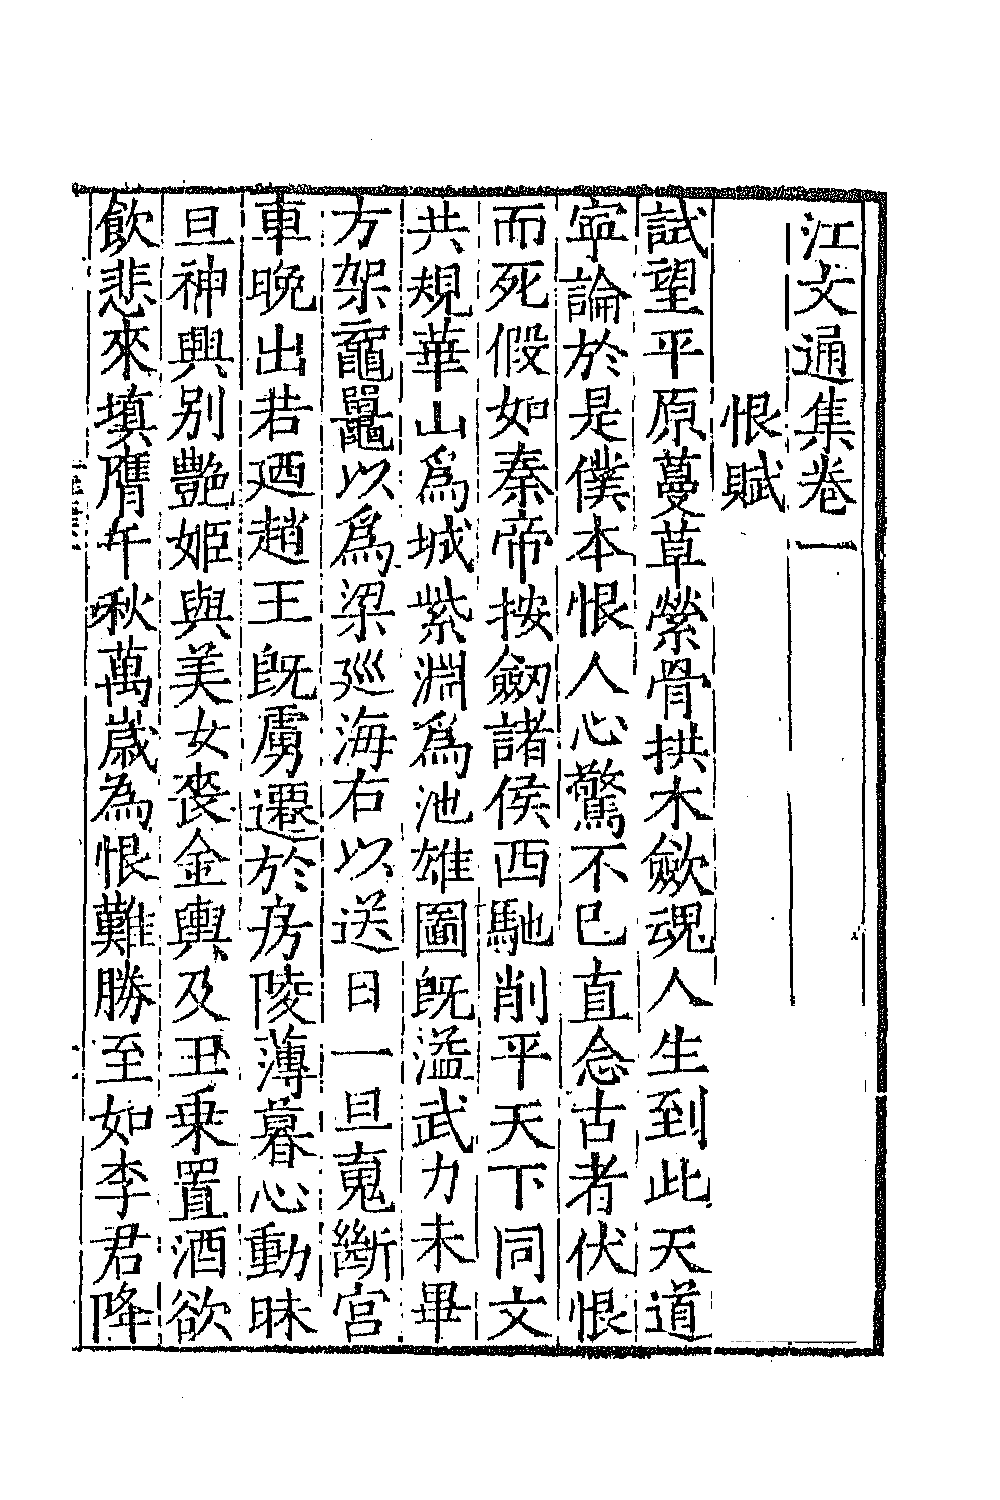 江文通集卷一
恨賦
試望平原蔓草縈骨拱木歛魂人生到此天道
寧論於是僕本恨人心驚不已直念古者伏恨
而死假如秦帝按劒諸侯西馳削平天下同文
共規華山爲城紫淵爲池雄圖既溢武力未畢
方架黿鼉以爲梁廵海右以送日一旦䰟斷宮
車晩出若廼趙王既虜遷於房陵薄暮心動昧
旦神興别艶姬與美女喪金輿及玉乗置酒欲
飲悲來填膺千秋萬歳為恨難勝至如李君降